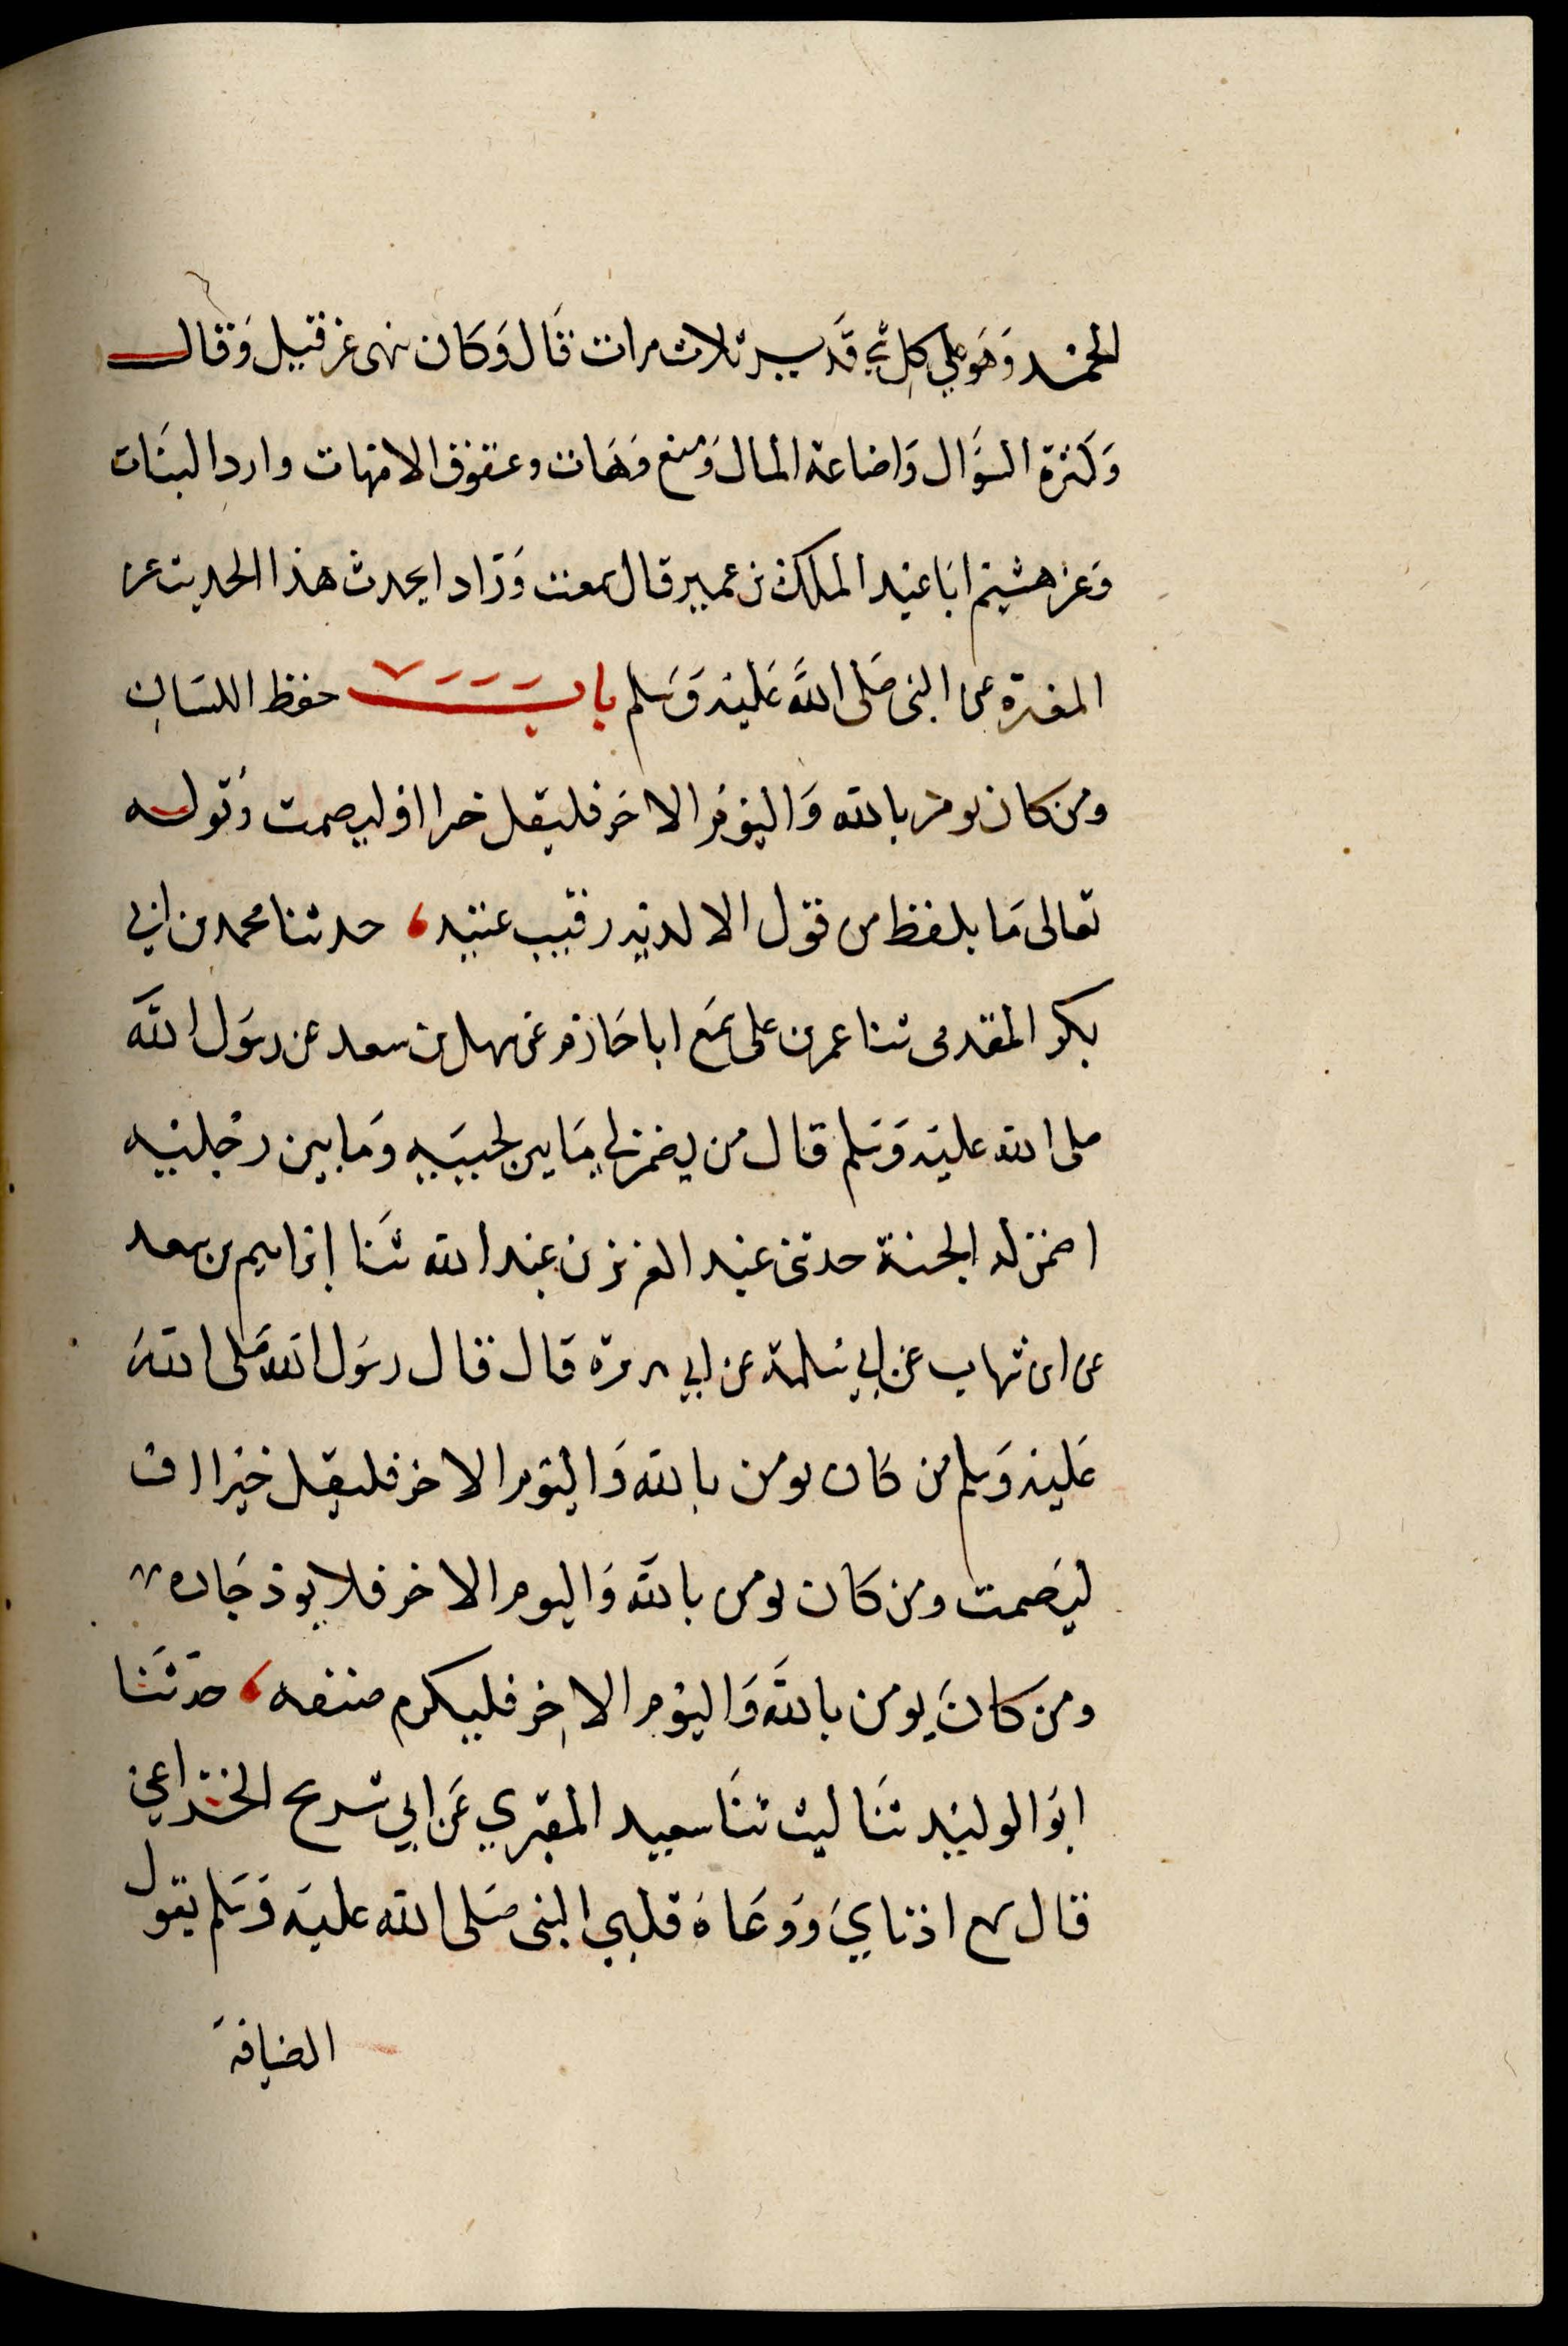 الحمد وهو على كل شي قدير ثلاث مرات قال وكان نهى عن قيل وقال
وكثرة السؤال واضاعة المال ومنع وهات وعقوق الامهات وارد البنات
وعن هشيم ابا عبد الملك بن عمير قال سمعت ورادا يحدث هذا الحديث عن
المغيرة عن النبي صلى الله عليه وسلم باب حفظ اللسان
ومن كان يومن بالله واليوم الاخر فليقل خيرا او ليصمت وقوله
تعالى ما يلفظ من قول الا لديه رقيب عتيد، حدثنا محمد بن ابي
بكر المقدمى ثنا عمر بن على سمع ابا حازم عن سهل بن سعد عن رسول الله
صلى الله عليه وسلم قال من يضمن لي ما بين لحييه وما بين رجليه
اضمن له الجنة حدثنى عبد العزيز بن عبد الله ثنا ابراهيم بن سعد
عن ابن شهاب عن ابي سلمة عن ابي هريرة قال قال رسول الله صلى الله
عليه وسلم من كان يومن بالله واليوم الاخر فليقل خيرا او
ليصمت ومن كان يومن بالله واليوم الاخر فلا يوذ جاره
ومن كان يومن بالله واليوم الاخر فليكرم ضيفه، حدثنا
ابو الوليد ثنا ليث ثنا سعيد المقبري عن ابي شريح الخزاعي
قال سمع اذناي ووعاه قلبي النبي صلى الله عليه وسلم يقول
الضيافة